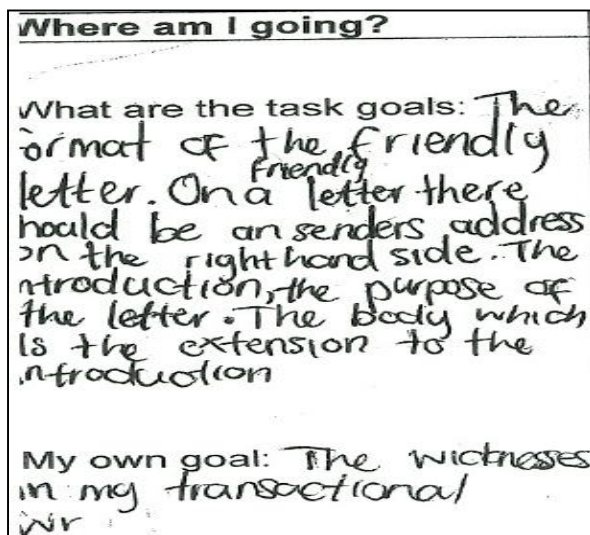 Where am I going?
What are the task goals: The
ormat of the friendly
friendly
letter. On a letter there
hould be an senders address
on the right hand side. The
ntroduction, the purpose of
the letter. The body which
is the extension to the
introduction
My own goal: The wicknesses
in my transactional
wr